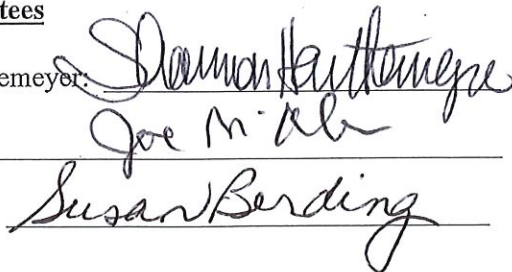 tees
emeyer: Shannon Hartkemeyer
Joe
Susan Berding